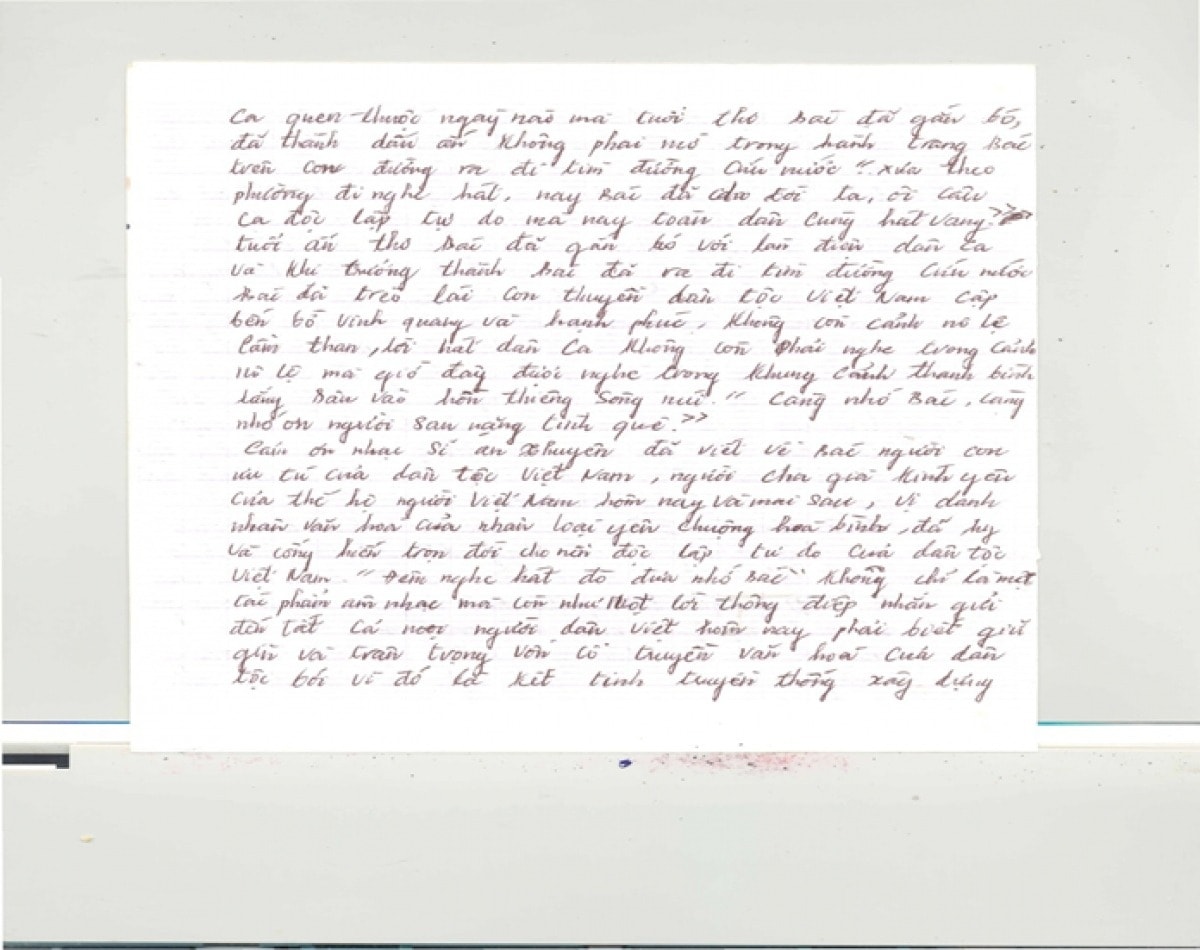 Ca quen thuộc ngày nào mà tuổi thơ Bác đã gắn bó,
đã thành dấu ấn không phai mờ trong hành trang Bác
trên con đường ra đi tìm đường cứu nước "xưa theo
phường đi nghe hát, nay Bác đã cho đời ta, ôi câu
ca độc lập tự do mà nay toàn dân cùng hát vang."
tuổi ấu thơ Bác đã gắn bó với làn điệu dân ca
và khi trưởng thành Bác đã ra đi tìm đường cứu nước
Bác đã trèo lái con thuyền dân tộc Việt Nam cập
bến bờ vinh quang và hạnh phúc, không còn cảnh nô lệ
lầm than, lời hát dân ca không còn phải nghe trong cảnh
nô lệ mà giờ đây được nghe trong khung cảnh thanh bình
lắng sâu vào hồn thiêng sông núi. "Càng nhớ Bác, càng
nhớ ơn người sâu nặng tình quê."
Cảm ơn nhạc sĩ an thuyên đã viết về Bác người con
ưu tú của dân tộc Việt Nam, người cha già kính yêu
của thế hệ người Việt Nam hôm nay và mai sau, vị danh
nhân văn hoá của nhân loại yêu chuộng hoà bình, đã hy
và cống hiến trọn đời cho nền độc lập tự do của dân tộc
Việt Nam. "Đêm nghe hát đò đưa nhớ Bác" không chỉ là một
tác phẩm âm nhạc mà còn như một lời thông điệp nhắn gửi
đến tất cả mọi người dân Việt hôm nay phải biết giữ
gìn và trân trọng vốn cổ truyền văn hoá của dân
tộc bởi vì đó là kết tinh truyền thống xây dựng